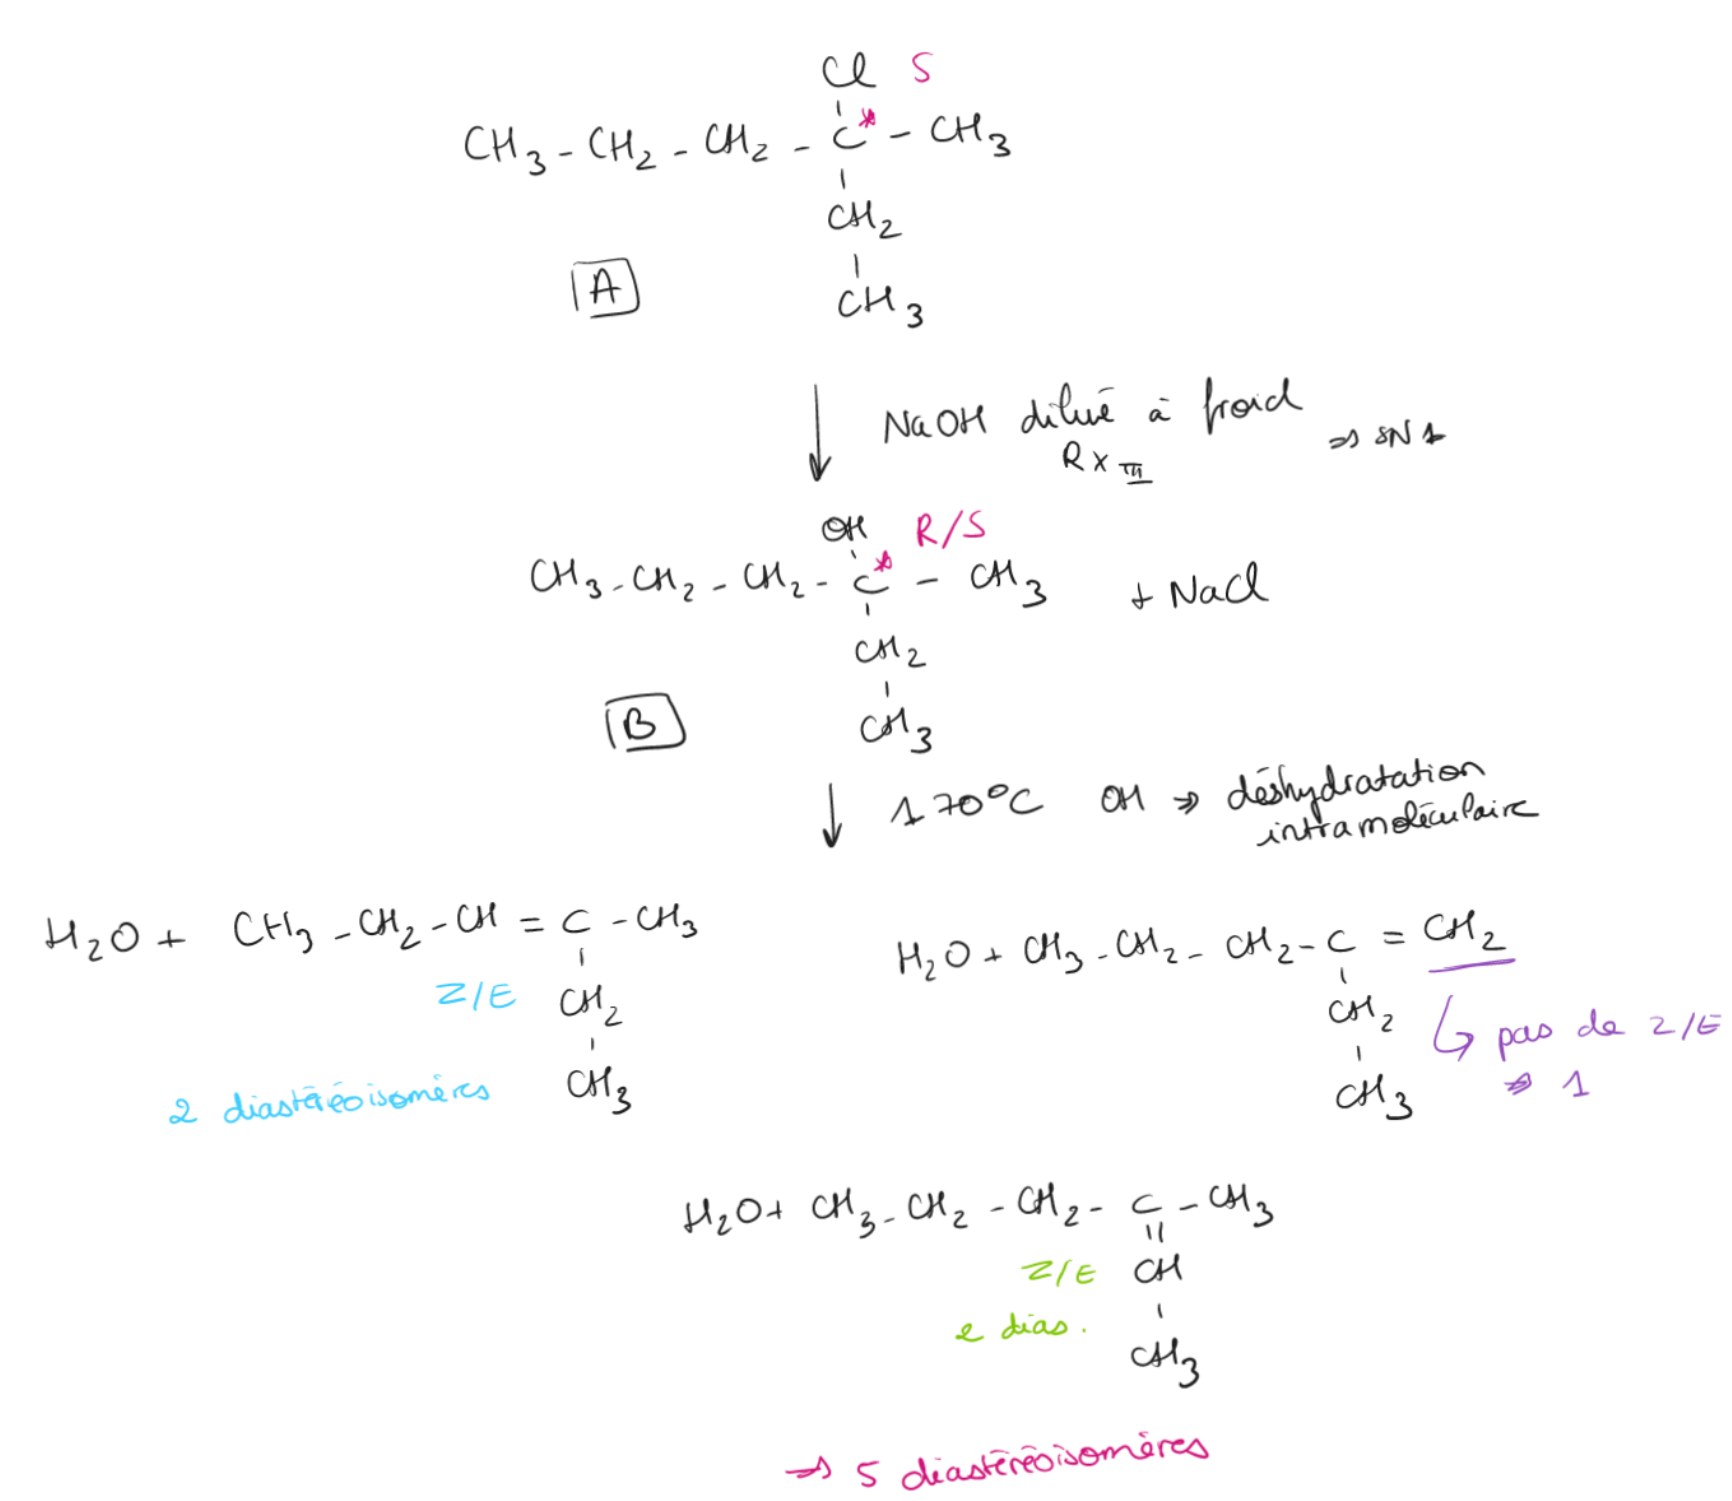 Cl S
CH3 - CH2 - CH2 - C* - CH3
CH2
CH3
A
NaOH dilué à froid ⇒ SN1
RX III
OH R/S
CH3 - CH2 - CH2 - C* - CH3 + NaCl
CH2
CH3
B
170°C OH ⇒ déshydratation
intramoléculaire
H2O + CH3 - CH2 - CH = C - CH3
Z/E CH2
CH3
2 diastéréoisomères
H2O + CH3 - CH2 - CH2 - C = CH2
CH2
CH3
↳ pas de Z/E
⇒ 1
H2O + CH3 - CH2 - CH2 - C - CH3
Z/E CH
2 dias.
CH3
→ 5 diastéréoisomères